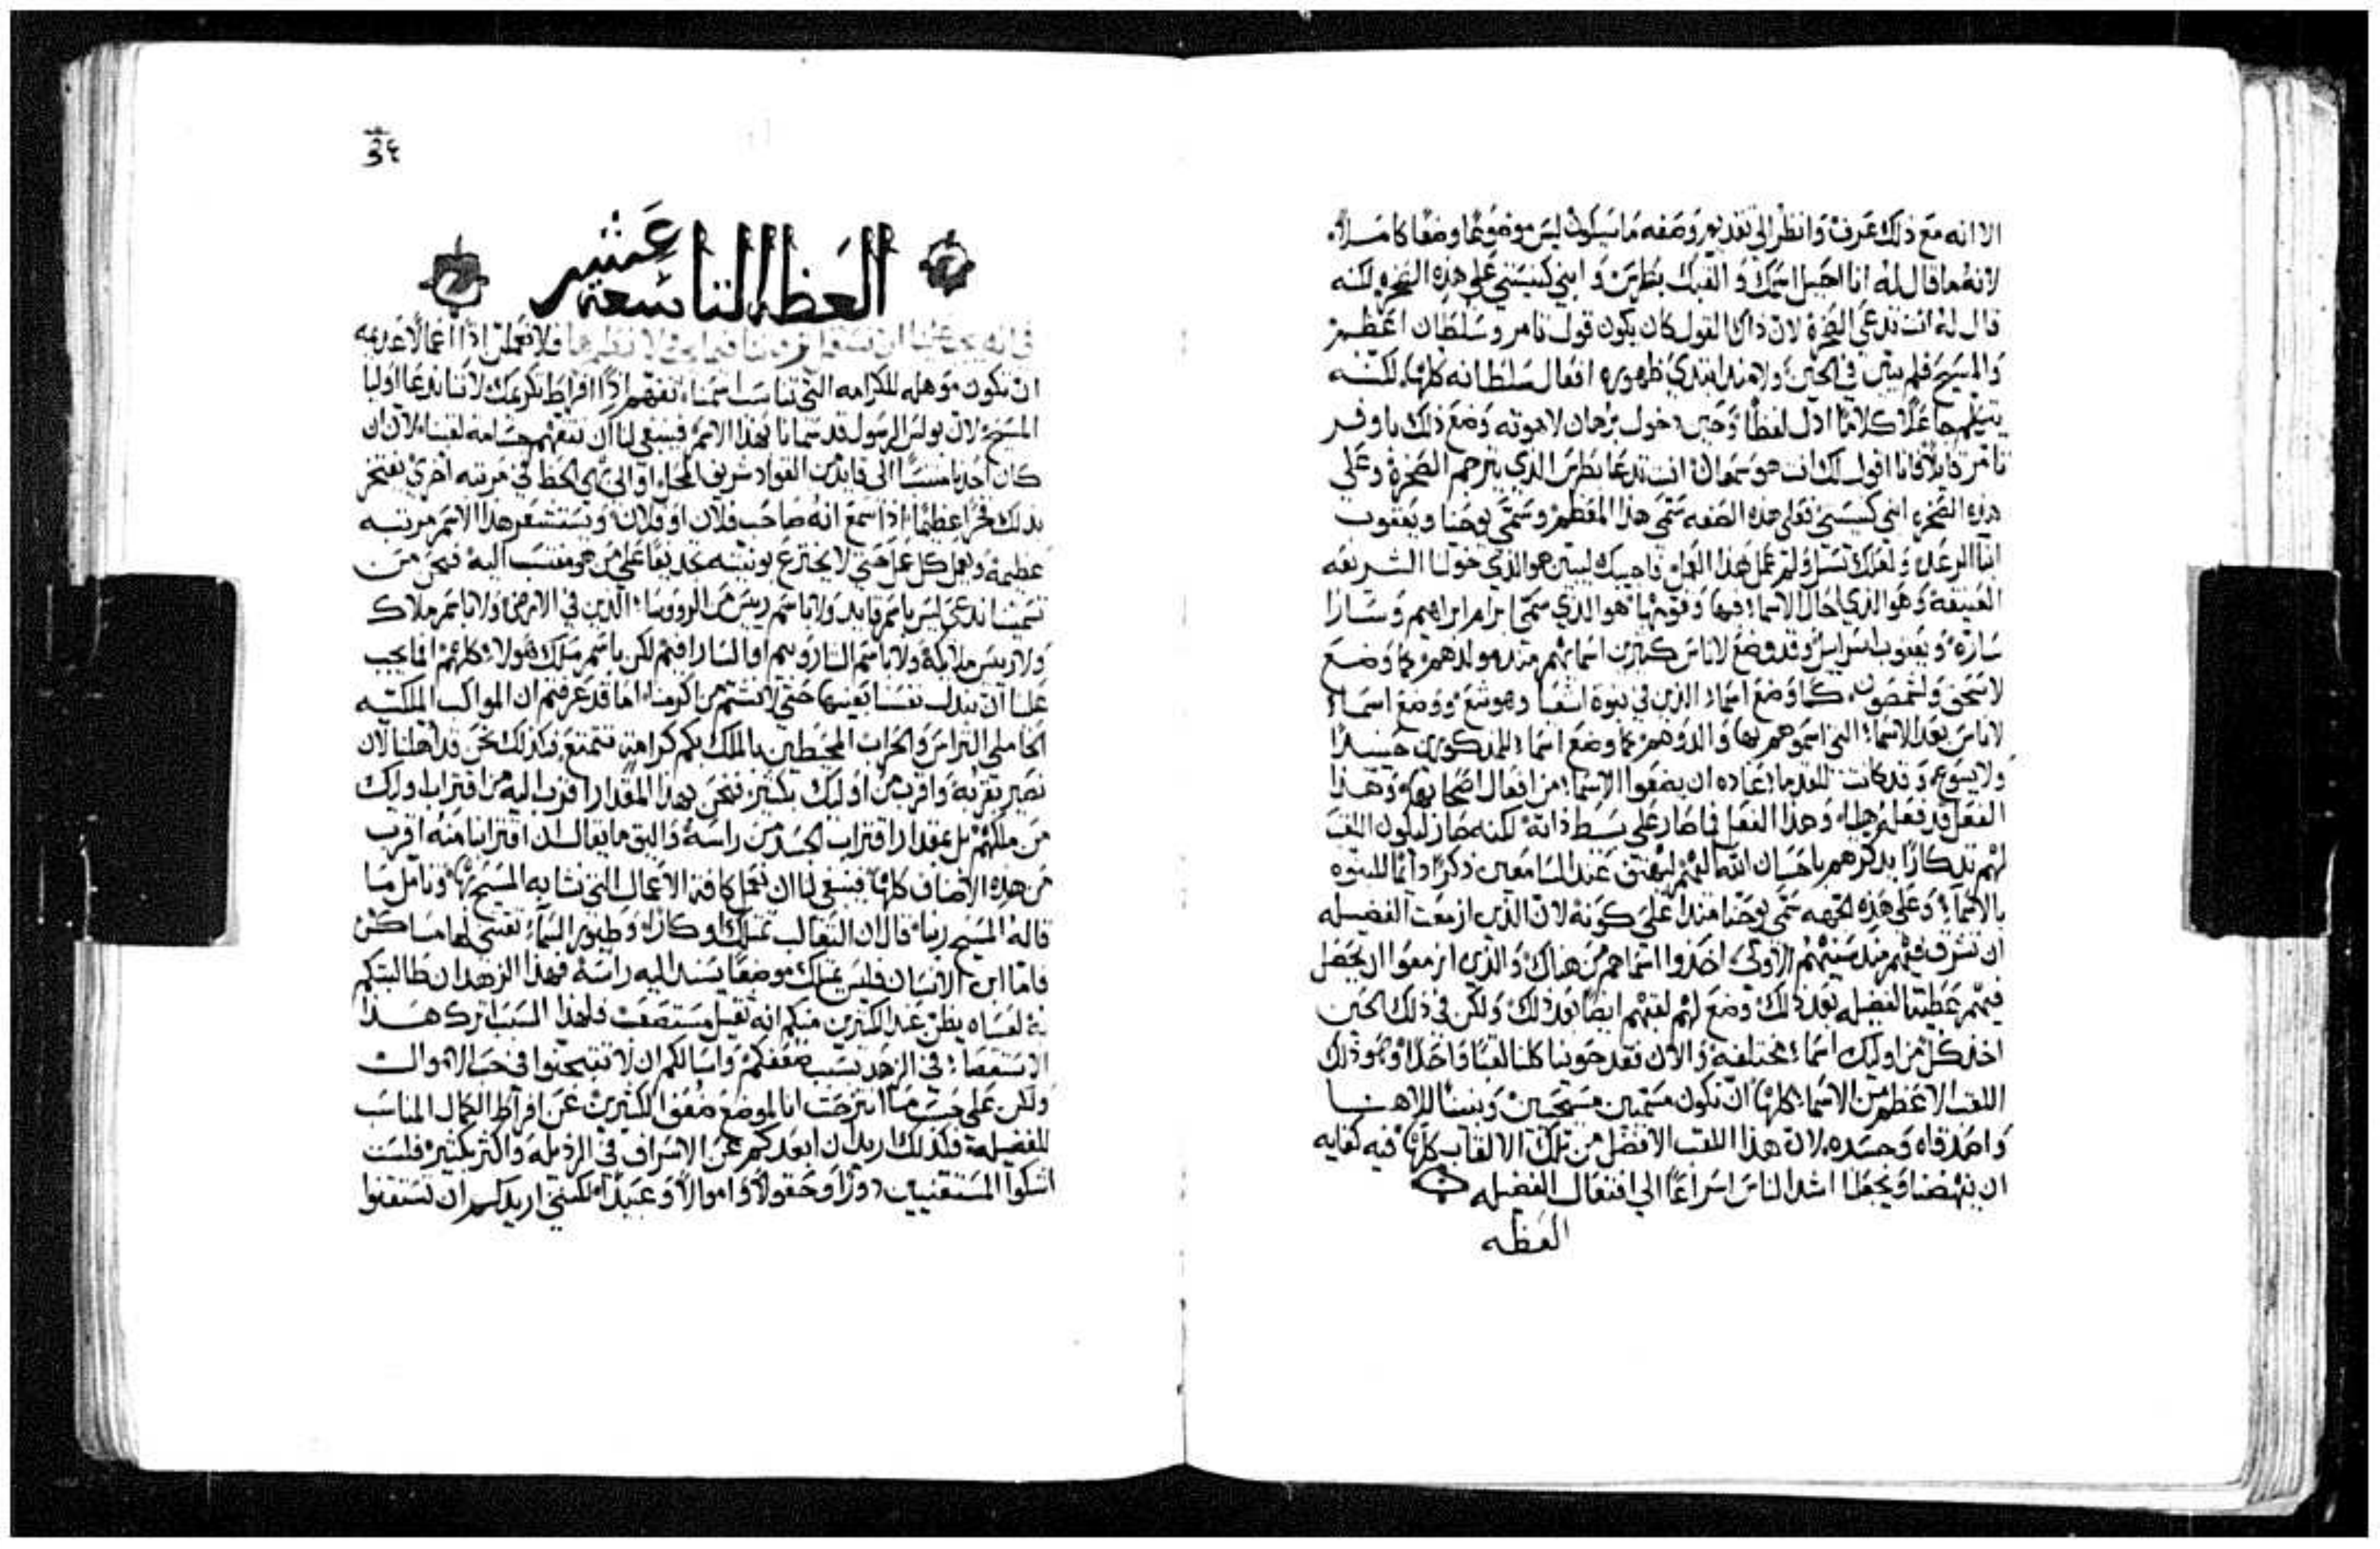 الا انه مع ذلك عرف وانظر الي تقديم وصفه ما سيكون ليس موضوعًا وضعًا كاملاً
لانه ما قال له انا احيل اسمك والقبك بطرس وابني كنيستي علي هذه الصخره لكنه
قال له انت تدعي الصخرة لان ذاك القول كان يكون قول تامر وسلطان اعظم
والمسيح فلم يبين في الحين ولا منذ ابتدي ظهوره افعال سلطانه كلها لكنه
يتكلم جاعلاً كلامًا اذل لفظًا وحين خول برهان لاهوته وضع ذلك باوفر
تامر قايلاً فانا اقول لك انت هو سمعان انت تدعا بطرس الذي يترجم الصخرة وعلي
هذه الصخره ابني كنيستي فعلي هذه الصفه سمي هذا المعظم وسمي يوحنا ويعقوب
ابنا الرعد ولعلك تسل ولم عمل هذا العمل فاجيبك ليبين هو الذي خولنا الشريعه
العتيقة وهو الذي احال الاسما فيها وقومها هو الذي سمي ابرام ابراهيم وسارا
سارة ويعقوب اسراييل وقد وضع لاناس كثيرين اسمايهم منذ مولدهم كما وضع
لاسحق ولشمصون كما وضع اسماء الذين في نبوة اشعيا وهوشع ووضع اسماء
لاناس بعد الاسماء التي اسموهم بها والدوهم كما وضع اسماء للمذكورين حينيذ
وليسوع وقد كانت للقدما عاده ان يضعوا الاسما من افعال اصحابها وهذا
الفعل قد فعله ايليا وهذا الفعل فما صار علي بسط ذاته لكنه صار ليكون اللقب
لهم تذكارًا يذكرهم باحسان الله اليهم ليعتق عند السامعين ذكرًا دايمًا للنبوه
بالاسما وعلي هذه الجهه سمي يوحنا منذ اعلي كونه لان الذين ازمعت الفضيله
ان تشرف فيهم منذ سنهم الاولي اخذوا اسماهم من هناك والذين ازمعوا ان يحصل
فيهم عظمة الفضيله بعد ذلك وضع لهم لقبهم ايضًا بعد ذلك ولكن في ذلك الحين
اخذ كل من اوليك اسماء مختلفة والان فقد حوينا كلنا لقبًا واحدًا وهو ذلك
اللقب الاعظم من الاسما كلها ان نكون مسمين مسيحيين وبنينًا للاهنا
واصدقاه وجسده لان هذا اللقب الافضل من تلك الالقاب كلها فيه كفايه
ان ينهضنا ويجعلنا اشد الناس اسراعًا الي افتعال الفضيله
العظه
٣٤
العظة التاسعة عشر
في انه يجب علينا ان فلا نعملن اذًا اعمالاً عادمه
ان تكون موهله للكرامه التي تناسب اسمنا تفهم اذًا افراط تكريمك لاننا ندعا اوليا
المسيح لان بولس الرسول قد سمانا بهذا الاسم فينبغي لنا ان نتفهم جسامة لقبنا لان ان
كان احدنا منتسبًا الي قايد من القواد شريف المحل او الي ذي الحظ في مرتبه اخري يفتخر
بذلك فخرًا عظيمًا اذا سمع انه صاحب فلان او فلان وتستشعر هذا الاسم مرتبه
عظيمة ويعمل كل عمل حتي لا يخترع تونيته تجديفًا علي من هو منتسب اليه فنحن من
تسميتنا ندعي ليس باسم قايد ولا باسم رييس من الرووسا الذين في الارض ولا باسم ملاك
ولا رييس ملايكة ولا باسم الساروبيم او السارافيم لكن باسم ملك هولاء كلهم افما يجب
علينا ان نبذل نفسنا بعينها حتي لا نشتم من اكرمنا اما قد عرفتم ان المواكب الملكيه
الحاملي التراس والحراب المحيطين بالملك بكم كرامه تتمتع فكذلك نحن قد اهلنا لان
نصير بقربه واقرب من اوليك بكثير فنحن بهذا المقدار اقرب اليه من اقتراب اوليك
من ملكهم بل بمقدار اقتراب الجسد من راسه واليق ما يقال ان اقترابنا منه اقرب
من هذه الاصناف كلها فينبغي لنا ان نعمل كافة الاعمال التي نشابه المسيح بها ونامل ما
قاله المسيح ربنا قال ان الثعالب تمتلك اوكارًا وطيور السماء تقتني لها مساكن
فاما ابن الانسان فليس يمتلك موضعًا يسند اليه راسه فهذا الزهد ان طالبتكم
به لعساه يظن عند الكثيرين منكم انه ثقيل مستصعب فلهذا السبب اترك هذا
الاستقصاء في الزهد بسبب ضعفكم واسالكم ان لا تبتهجوا في حب الاموال
ولكن علي حسب ما انتزحت انا لموضع ضعف الكثيرين عن افراط الكمال المناسب
للفضيلة فكذلك اريد ان ابعدكم عن الاسراف في الرذيله واكثر بكثير فلست
اشكوا المستقنيين دورًا وحقولاً واموالاً وعبيدًا لكنني اريدكم ان تستقنوا